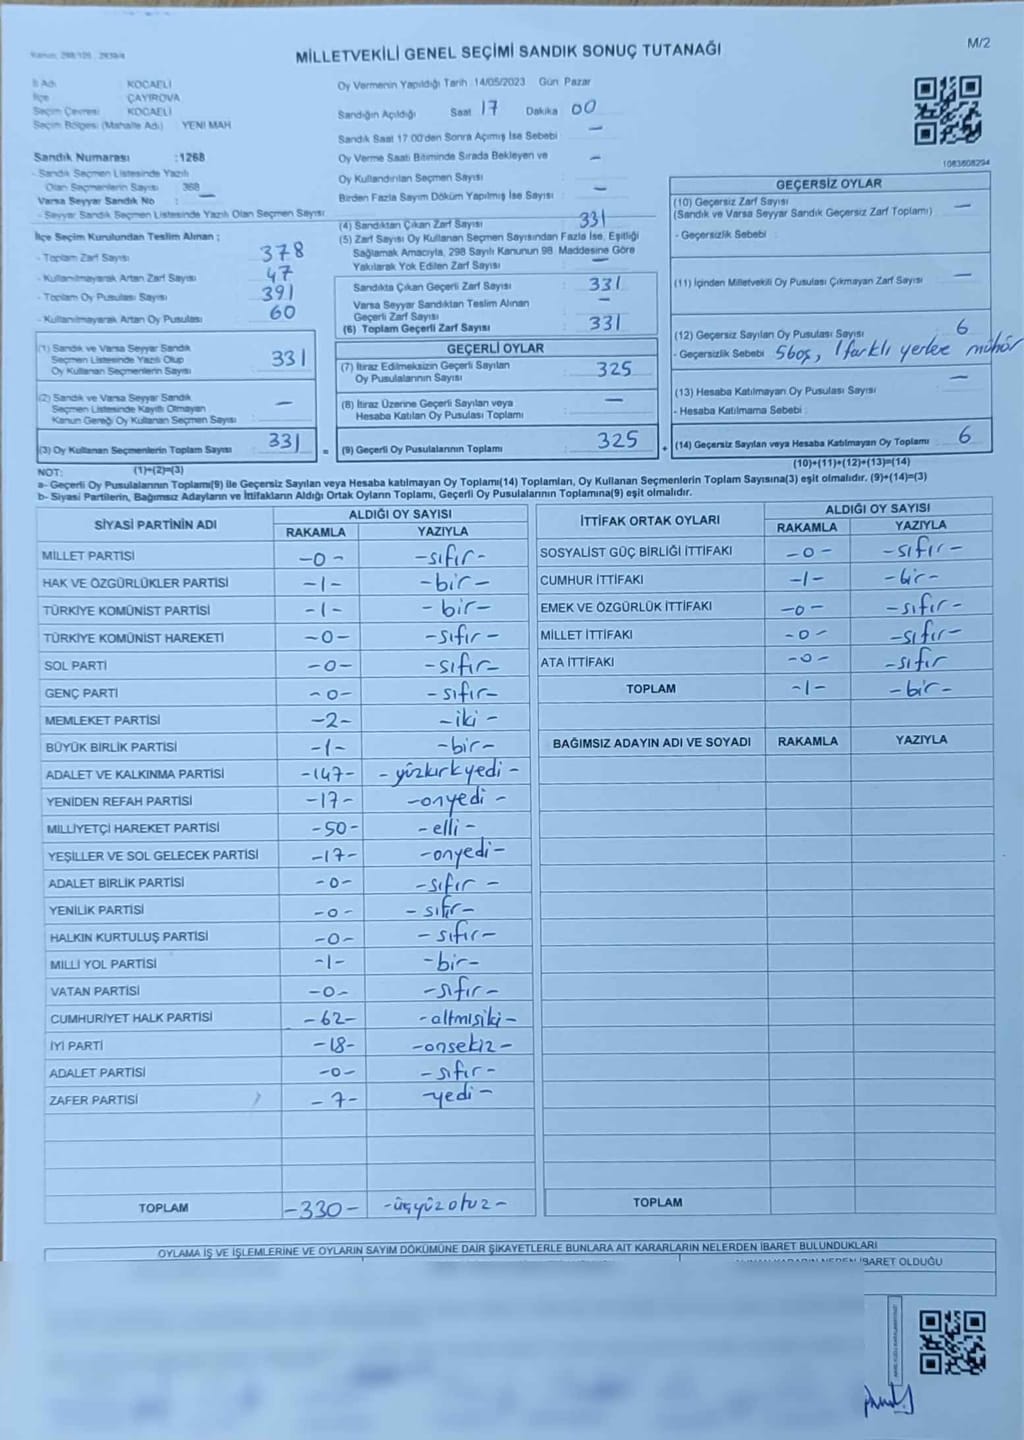 MİLLETVEKİLİ GENEL SEÇİMİ SANDIK SONUÇ TUTANAĞI
M/2
İl Adı : KOCAELİ
İlçe : ÇAYIROVA
Seçim Çevresi : KOCAELİ
Seçim Bölgesi (Mahalle Adı) : YENİ MAH
Sandık Numarası :1268
- Sandık Seçmen Listesinde Yazılı
Olan Seçmenlerin Sayısı : 368
Varsa Seyyar Sandık No : —
- Seyyar Sandık Seçmen Listesinde Yazılı Olan Seçmen Sayısı :
İlçe Seçim Kurulundan Teslim Alınan ;
- Toplam Zarf Sayısı : 378
- Kullanılmayarak Artan Zarf Sayısı : 47
- Toplam Oy Pusulası Sayısı : 391
- Kullanılmayarak Artan Oy Pusulası : 60
(1) Sandık ve Varsa Seyyar Sandık
Seçmen Listesinde Yazılı Olup
Oy Kullanan Seçmenlerin Sayısı : 331
(2) Sandık ve Varsa Seyyar Sandık
Seçmen Listesinde Kayıtlı Olmayan
Kanun Gereği Oy Kullanan Seçmen Sayısı : —
(3) Oy Kullanan Seçmenlerin Toplam Sayısı : 331
Oy Vermenin Yapıldığı Tarih :14/05/2023 Gün :Pazar
Sandığın Açıldığı Saat :17 Dakika :00
Sandık Saat 17:00'den Sonra Açımış İse Sebebi : —
Oy Verme Saati Bitiminde Sırada Bekleyen ve
Oy Kullandırılan Seçmen Sayısı : —
Birden Fazla Sayım Döküm Yapılmış İse Sayısı : —
(4) Sandıktan Çıkan Zarf Sayısı : 331
(5) Zarf Sayısı Oy Kullanan Seçmen Sayısından Fazla İse, Eşitliği
Sağlamak Amacıyla, 298 Sayılı Kanunun 98. Maddesine Göre
Yakılarak Yok Edilen Zarf Sayısı : —
Sandıkta Çıkan Geçerli Zarf Sayısı : 331
Varsa Seyyar Sandıktan Teslim Alınan
Geçerli Zarf Sayısı : —
(6) Toplam Geçerli Zarf Sayısı : 331
GEÇERLİ OYLAR
(7) İtiraz Edilmeksizin Geçerli Sayılan
Oy Pusulalarının Sayısı : 325
(8) İtiraz Üzerine Geçerli Sayılan veya
Hesaba Katılan Oy Pusulası Toplamı : —
= (9) Geçerli Oy Pusulalarının Toplamı : 325
1083608294
GEÇERSİZ OYLAR
(10) Geçersiz Zarf Sayısı
(Sandık ve Varsa Seyyar Sandık Geçersiz Zarf Toplamı) : —
- Geçersizlik Sebebi :
(11) İçinden Milletvekili Oy Pusulası Çıkmayan Zarf Sayısı : —
(12) Geçersiz Sayılan Oy Pusulası Sayısı : 6
- Geçersizlik Sebebi : 5 boş, 1 farklı yerlere mühür
(13) Hesaba Katılmayan Oy Pusulası Sayısı : —
- Hesaba Katılmama Sebebi :
+ (14) Geçersiz Sayılan veya Hesaba Katılmayan Oy Toplamı : 6
NOT: (1)+(2)=(3)
(10)+(11)+(12)+(13)=(14)
a- Geçerli Oy Pusulalarının Toplamı(9) ile Geçersiz Sayılan veya Hesaba katılmayan Oy Toplamı(14) Toplamları, Oy Kullanan Seçmenlerin Toplam Sayısına(3) eşit olmalıdır. (9)+(14)=(3)
b- Siyasi Partilerin, Bağımsız Adayların ve İttifakların Aldığı Ortak Oyların Toplamı, Geçerli Oy Pusulalarının Toplamına(9) eşit olmalıdır.
SİYASİ PARTİNİN ADI ALDIĞI OY SAYISI
RAKAMLA YAZIYLA
MİLLET PARTİSİ -0- -sıfır-
HAK VE ÖZGÜRLÜKLER PARTİSİ -1- -bir-
TÜRKİYE KOMÜNİST PARTİSİ -1- -bir-
TÜRKİYE KOMÜNİST HAREKETİ -0- -sıfır-
SOL PARTİ -0- -sıfır-
GENÇ PARTİ -0- -sıfır-
MEMLEKET PARTİSİ -2- -iki-
BÜYÜK BİRLİK PARTİSİ -1- -bir-
ADALET VE KALKINMA PARTİSİ -147- -yüzkırkyedi-
YENİDEN REFAH PARTİSİ -17- -onyedi-
MİLLİYETÇİ HAREKET PARTİSİ -50- -elli-
YEŞİLLER VE SOL GELECEK PARTİSİ -17- -onyedi-
ADALET BİRLİK PARTİSİ -0- -sıfır-
YENİLİK PARTİSİ -0- -sıfır-
HALKIN KURTULUŞ PARTİSİ -0- -sıfır-
MİLLİ YOL PARTİSİ -1- -bir-
VATAN PARTİSİ -0- -sıfır-
CUMHURİYET HALK PARTİSİ -62- -altmışiki-
İYİ PARTİ -18- -onsekiz-
ADALET PARTİSİ -0- -sıfır-
ZAFER PARTİSİ -7- -yedi-
TOPLAM -330- -üçyüzotuz-
İTTİFAK ORTAK OYLARI ALDIĞI OY SAYISI
RAKAMLA YAZIYLA
SOSYALİST GÜÇ BİRLİĞİ İTTİFAKI -0- -sıfır-
CUMHUR İTTİFAKI -1- -bir-
EMEK VE ÖZGÜRLÜK İTTİFAKI -0- -sıfır-
MİLLET İTTİFAKI -0- -sıfır-
ATA İTTİFAKI -0- -sıfır
TOPLAM -1- -bir-
BAĞIMSIZ ADAYIN ADI VE SOYADI RAKAMLA YAZIYLA
TOPLAM
OYLAMA İŞ VE İŞLEMLERİNE VE OYLARIN SAYIM DÖKÜMÜNE DAİR ŞİKAYETLERLE BUNLARA AİT KARARLARIN NELERDEN İBARET BULUNDUKLARI
İBARET OLDUĞU